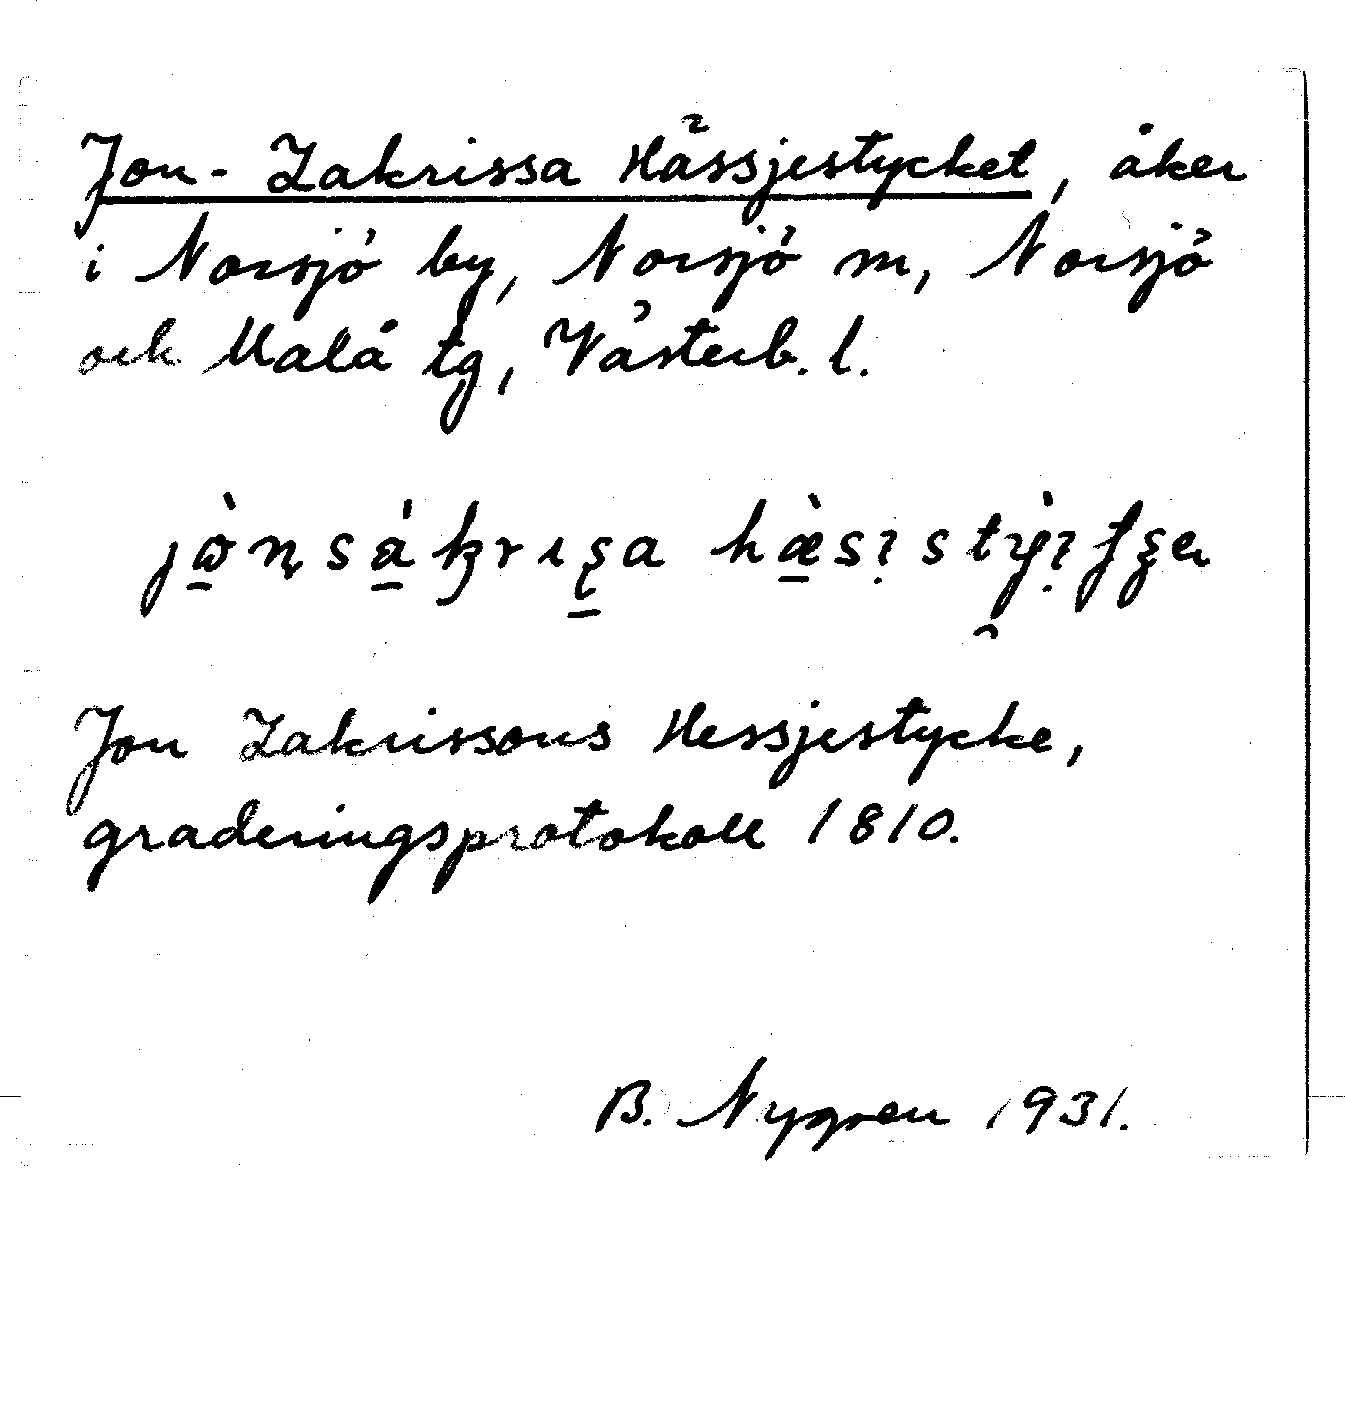 Jon-Zakrissa Hässjestycket, åker
i Norsjö by, Norsjö m, Norsjö
och Malå tg, Västerb. l.
Jon Zakrissons Hessjestycke,
graderingsprotokoll 1810.
B. Nygren 1931.